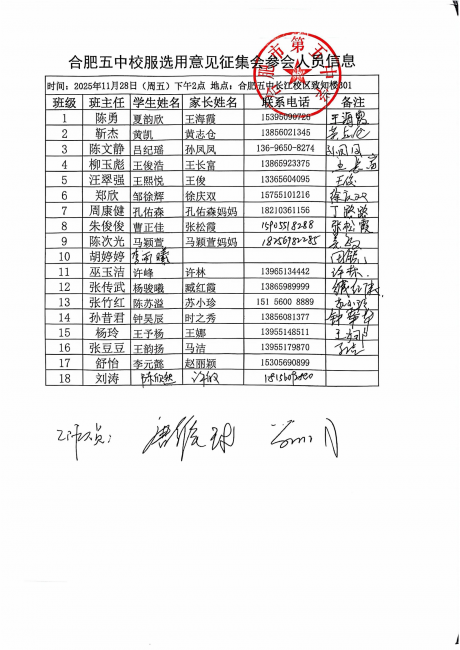 合肥五中校服选用意见征集会参会人员信息
时间：2025年11月28日（周五）下午2点 地点：合肥五中长江校区致知楼301
班级 班主任 学生姓名 家长姓名 联系电话 备注
1 陈勇 夏韵欣 王海霞 15395090726 王海霞
2 靳杰 黄凯 黄志仓 13856021345 黄志仓
3 陈文静 吕纪瑶 孙凤凤 136-9650-8274 孙凤凤
4 柳玉彪 王俊浩 王长富 13865923375 王长富
5 汪翠强 王熙悦 王俊 13365604095 王俊
6 郑欣 邹徐辉 徐庆双 15755101216 徐庆双
7 周康健 孔佑森 孔佑森妈妈 18210361156
8 朱俊俊 曹正佳 张松霞 15905518288 张松霞
9 陈次光 马颖萱 马颖萱妈妈 18256982285
10 胡婷婷
11 巫玉洁 许峰 许林 13965134442 许林
12 张传武 杨骏曦 臧红霞 13865989999 臧红霞
13 张竹红 陈苏溢 苏小珍 151 5600 8889 苏小珍
14 孙昔君 钟昊辰 时之秀 13856081377
15 杨玲 王予杨 王娜 13955148511 王娜
16 张豆豆 王韵扬 马洁 13955179870 马洁
17 舒怡 李元懿 赵丽颖 15305690899
18 刘涛
工作人员：